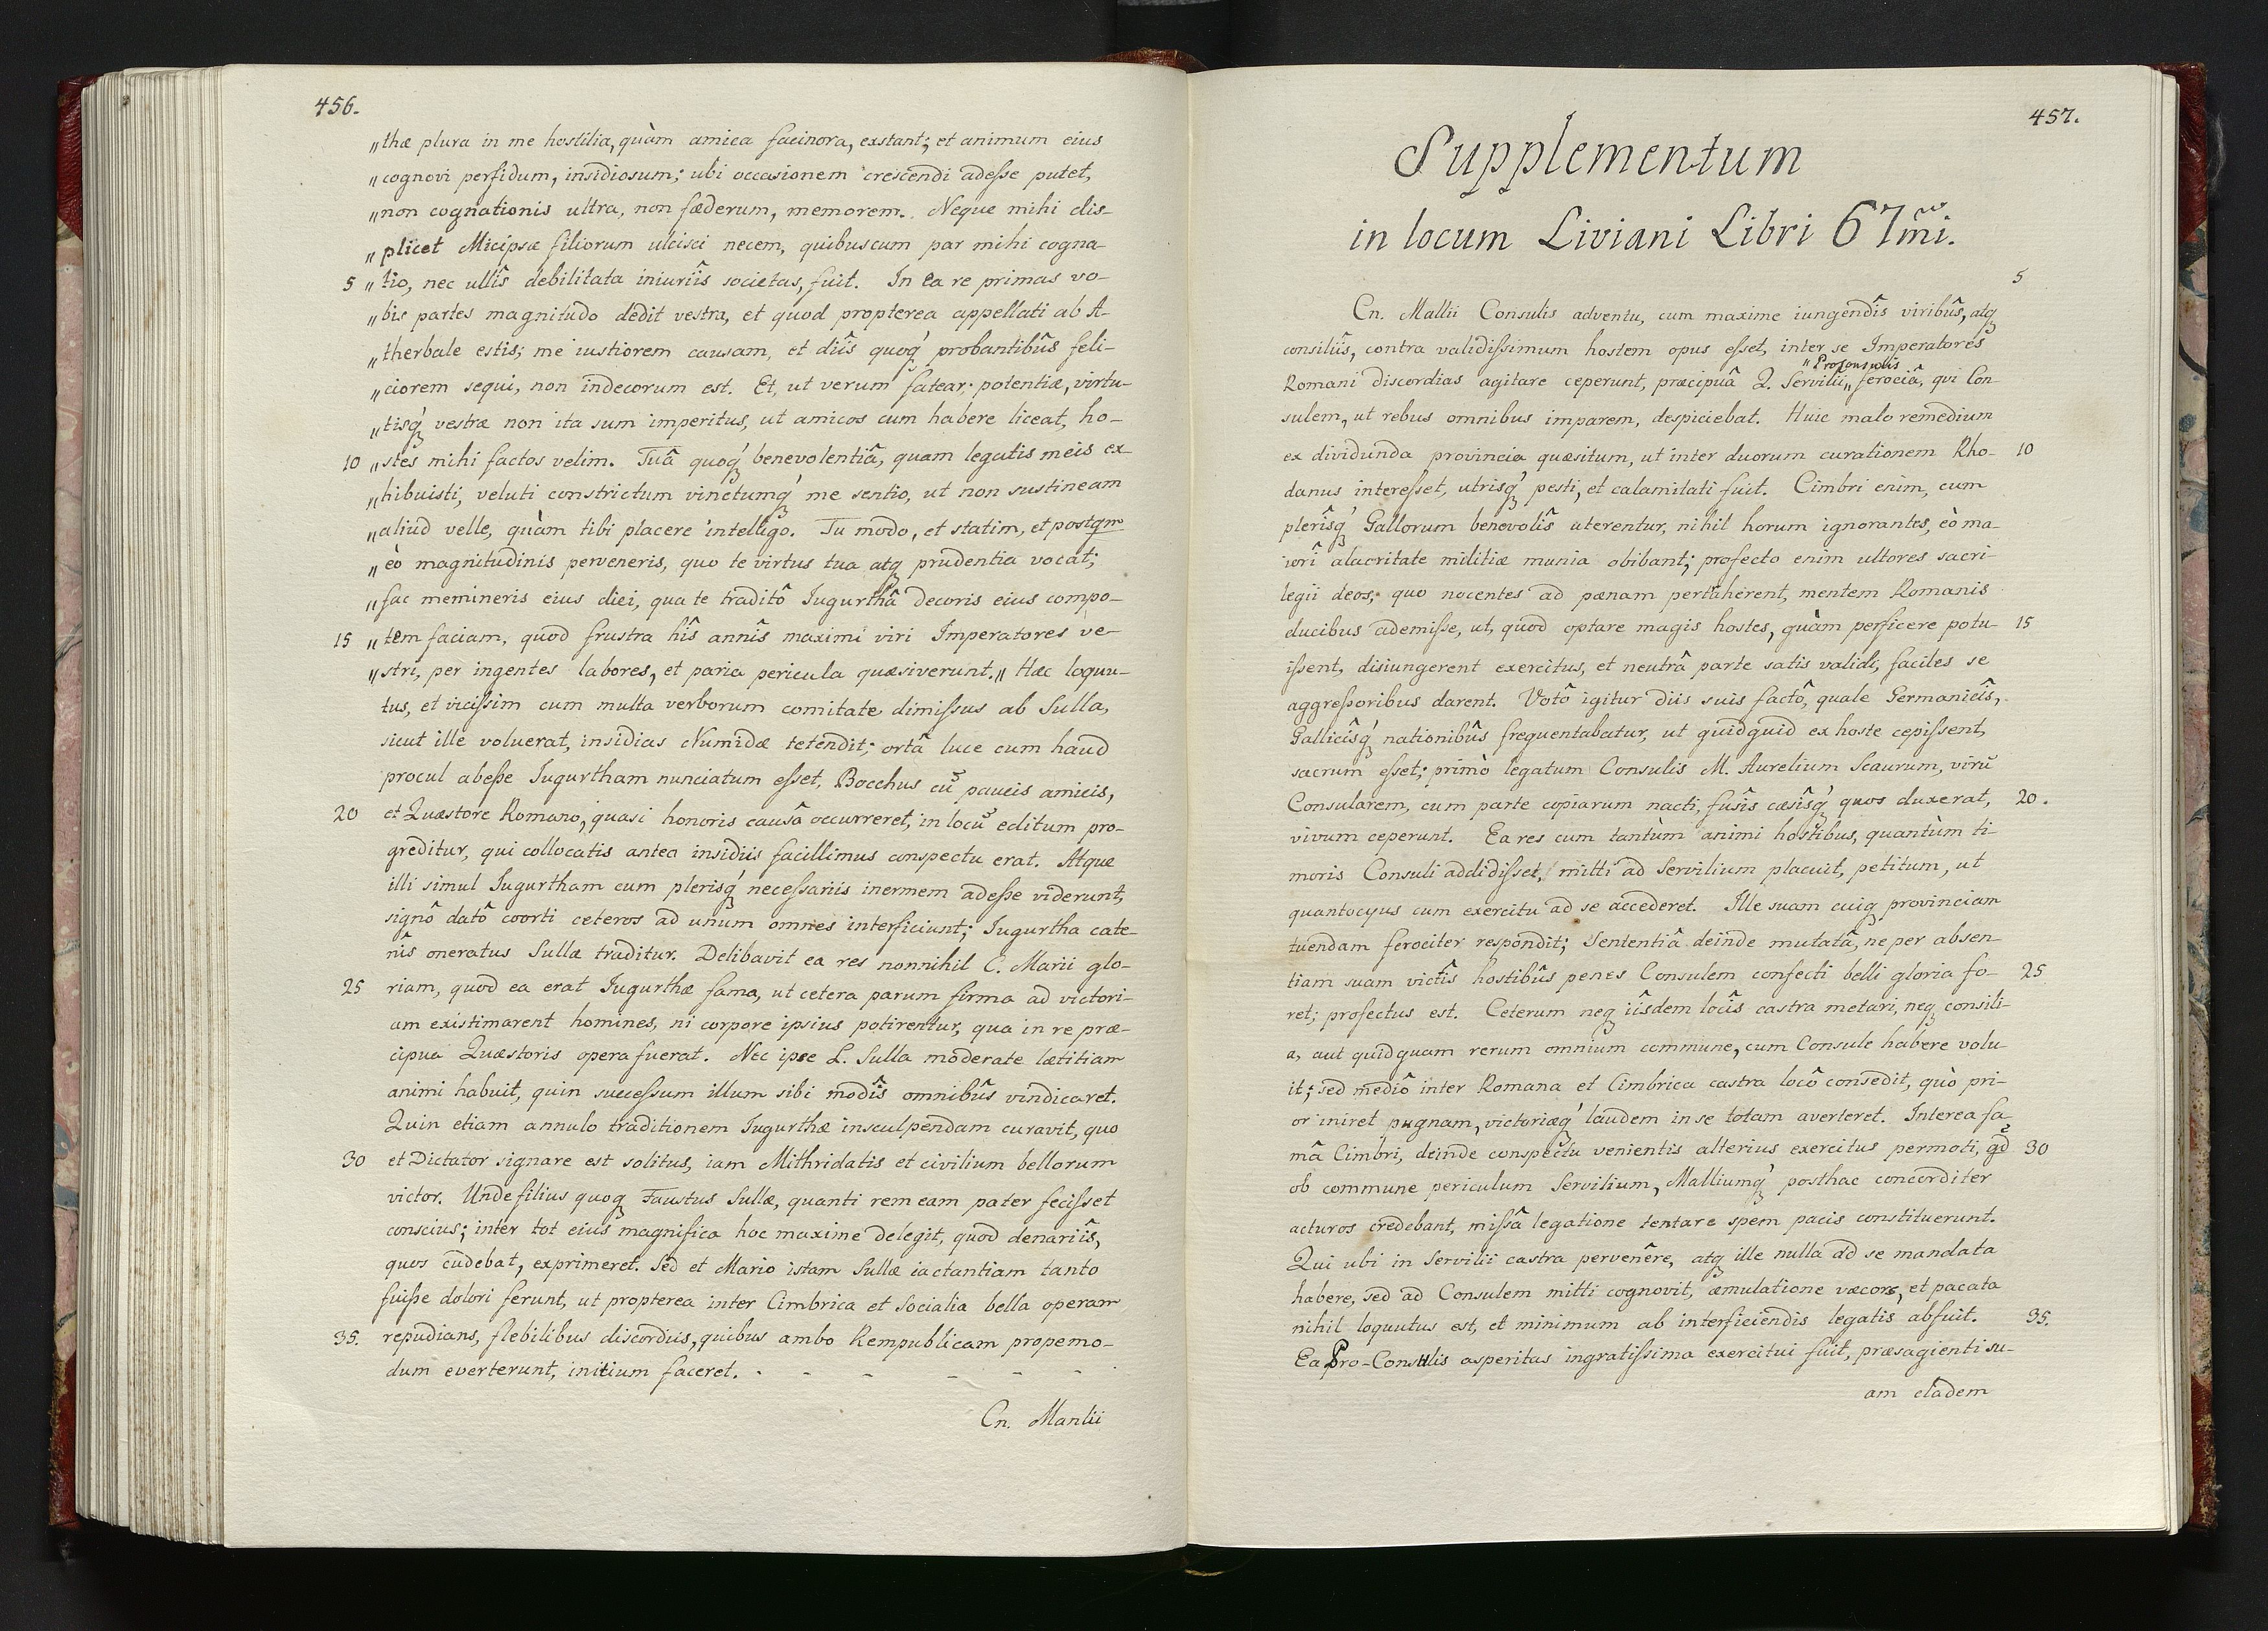 456.
„thæ plura in me hostilia, quàm amica facinora, exstant; et animum eius
„cognovi perfidum, insidiosum; ubi occasionem crescendi adeſse putet,
„non cognationis ultra, non fæderum, memorem. Neque mihi dis-
„plicet Micipsæ filiorum ulcisci necem, quibuscum par mihi cogna-
5 „tio, nec ullîs debilitata iniuriîs societas, fuit. In ea re primas vo-
„bis partes magnitudo dedit vestra, et quod propterea appellati ab A-
„therbale estis; me iustiorem causam, et diîs quoq́ꝫ probantibûs feli-
„ciorem sequi, non indecorum est. Et, ut verum fatear; potentiæ, virtu-
„tisq́ꝫ vestræ non ita sum imperitus, ut amicos cum habere liceat, ho-
10 „stes mihi factos velim. Tuâ quoq́ꝫ benevolentiâ, quam legatis meis ex-
„hibuisti, veluti constrictum vinctumq́ꝫ me sentio, ut non sustineam
„aliud velle, quàm tibi placere intelligo. Tu modo, et statim, et postqm
„eò magnitudinis perveneris, quo te virtus tua atqꝫ prudentia vocat;
„fac memineris eius diei, qua te traditô Iugurthâ decoris eius compo-
15 „tem faciam, quod frustra hîs annîs maximi viri Imperatores ve-
„stri, per ingentes labores, et paria pericula quæsiverunt.„ Hæc loquu-
tus, et viciſsim cum multa verborum comitate dimiſsus ab Sulla,
sicut ille voluerat, insidias Numidæ tetendit; ortâ luce cum haud
procul abeſse Iugurtham nunciatum eſset, Bocchus cū paucis amicis,
20 et Quæstore Romano, quasi honoris causâ occurreret, in locū editum pro-
greditur, qui collocatis antea insidiis facillimus conspectu erat. Atque
illi simul Iugurtham cum plerisq́ꝫ neceſsariis inermem adeſse viderunt,
signô datô coorti ceteros ad unum omnes interficiunt; Iugurtha cate-
nîs oneratus Sullæ traditur. Delibavit ea res nonnihil C. Marii glo-
25 riam, quod ea erat Iugurthæ fama, ut cetera parum firma ad victori-
am existimarent homines, ni corpore ipsius potirentur, qua in re præ-
cipua Quæstoris opera fuerat. Nec ipse L. Sulla moderate lætitiam
animi habuit, quin succeſsum illum sibi modîs omnibûs vindicaret.
Quin etiam annulo traditionem Iugurthæ insculpendam curavit, quo
30 et Dictator signare est solitus, iam Mithridatis et civilium bellorum
victor. Unde filius quoqꝫ Faustus Sullæ, quanti rem eam pater feciſset
conscius; inter tot eius magnifica hoc maxime delegit, quod denariîs,
quos cudebat, exprimeret. Sed et Mario istam Sullæ iactantiam tanto
fuiſse dolori ferunt, ut propterea inter Cimbrica et Socialia bella operam
35. repudians, flebilibus discordiis, quibus ambo Rempublicam propemo-
dum everterunt, initium faceret. - - - - - -
Cn. Manlii
457.
Supplementum
in locum Liviani Libri 67mi.
5
Cn. Mallii Consulis adventu, cum maxime iungendîs viribûs, atqꝫ
consiliîs, contra validiſsimum hostem opus eſset, inter se Imperatores
„Proconsulis
Romani discordias agitare ceperunt, præcipuâ Q. Servilii„ ferociâ, qui Con-
sulem, ut rebus omnibus imparem, despiciebat. Huic malo remedium
ex dividunda provincia quæsitum, ut inter duorum curationem Rho- 10
danus intereſset, utrisq́ꝫ pesti, et calamitati fuit. Cimbri enim, cum
plerîsq́ꝫ Gallorum benevolîs uterentur, nihil horum ignorantes, eò ma-
iorî alacritate militiæ munia obibant; profecto enim ultores sacri-
legii deos, quo nocentes ad pænam pertaherent, mentem Romanis
ducibus ademiſse, ut, quod optare magis hostes, quàm perficere potu- 15
iſsent, disiungerent exercitus, et neutrâ parte satis validi, faciles se
aggreſsoribus darent. Votô igitur diis suis factô, quale Germanicîs,
Gallicîsq́ꝫ nationibûs frequentabatur, ut quidquid ex hoste cepiſsent,
sacrum eſset; primò legatum Consulis M. Aurelium Scaurum, virū
Consularem, cum parte copiarum nacti, fusîs cæsîsq́ꝫ quos duxerat, 20.
vivum ceperunt. Ea res cum tantùm animi hostibus, quantùm ti-
moris Consuli addidiſset, mitti ad Servilium placuit, petitum, ut
quantocyus cum exercitu ad se accederet. Ille suam cuiqꝫ provinciam
tuendam ferociter respondit; Sententiâ deinde mutatâ, ne per absen-
tiam suam victîs hostibûs penes Consulem confecti belli gloria fo- 25
ret; profectus est. Ceterum neqꝫ iîsdem locîs castra metari, neqꝫ consili-
a, aut quidquam rerum omnium commune, cum Consule habere volu-
it; sed mediô inter Romana et Cimbrica castra locô consedit, quò pri-
or iniret pugnam, victoriæq́ꝫ laudem in se totam averteret. Interea fa-
mâ Cimbri, deinde conspectu venientis alterius exercitus permoti, qd 30
ob commune periculum Servilium, Malliumq́ꝫ posthac concorditer
acturos credebant, miſsâ legatione tentare spem pacis constituerunt.
Qui ubi in Servilii castra pervenêre, atqꝫ ille nulla ad se mandata
habere, sed ad Consulem mitti cognovit, æmulatione væcors, et pacata
nihil loquutus est, et minimum ab interficiendis legatis abfuit. 35.
Ea Pro-Consulis asperitas ingratiſsima exercitui fuit, præsagienti su-
am cladem